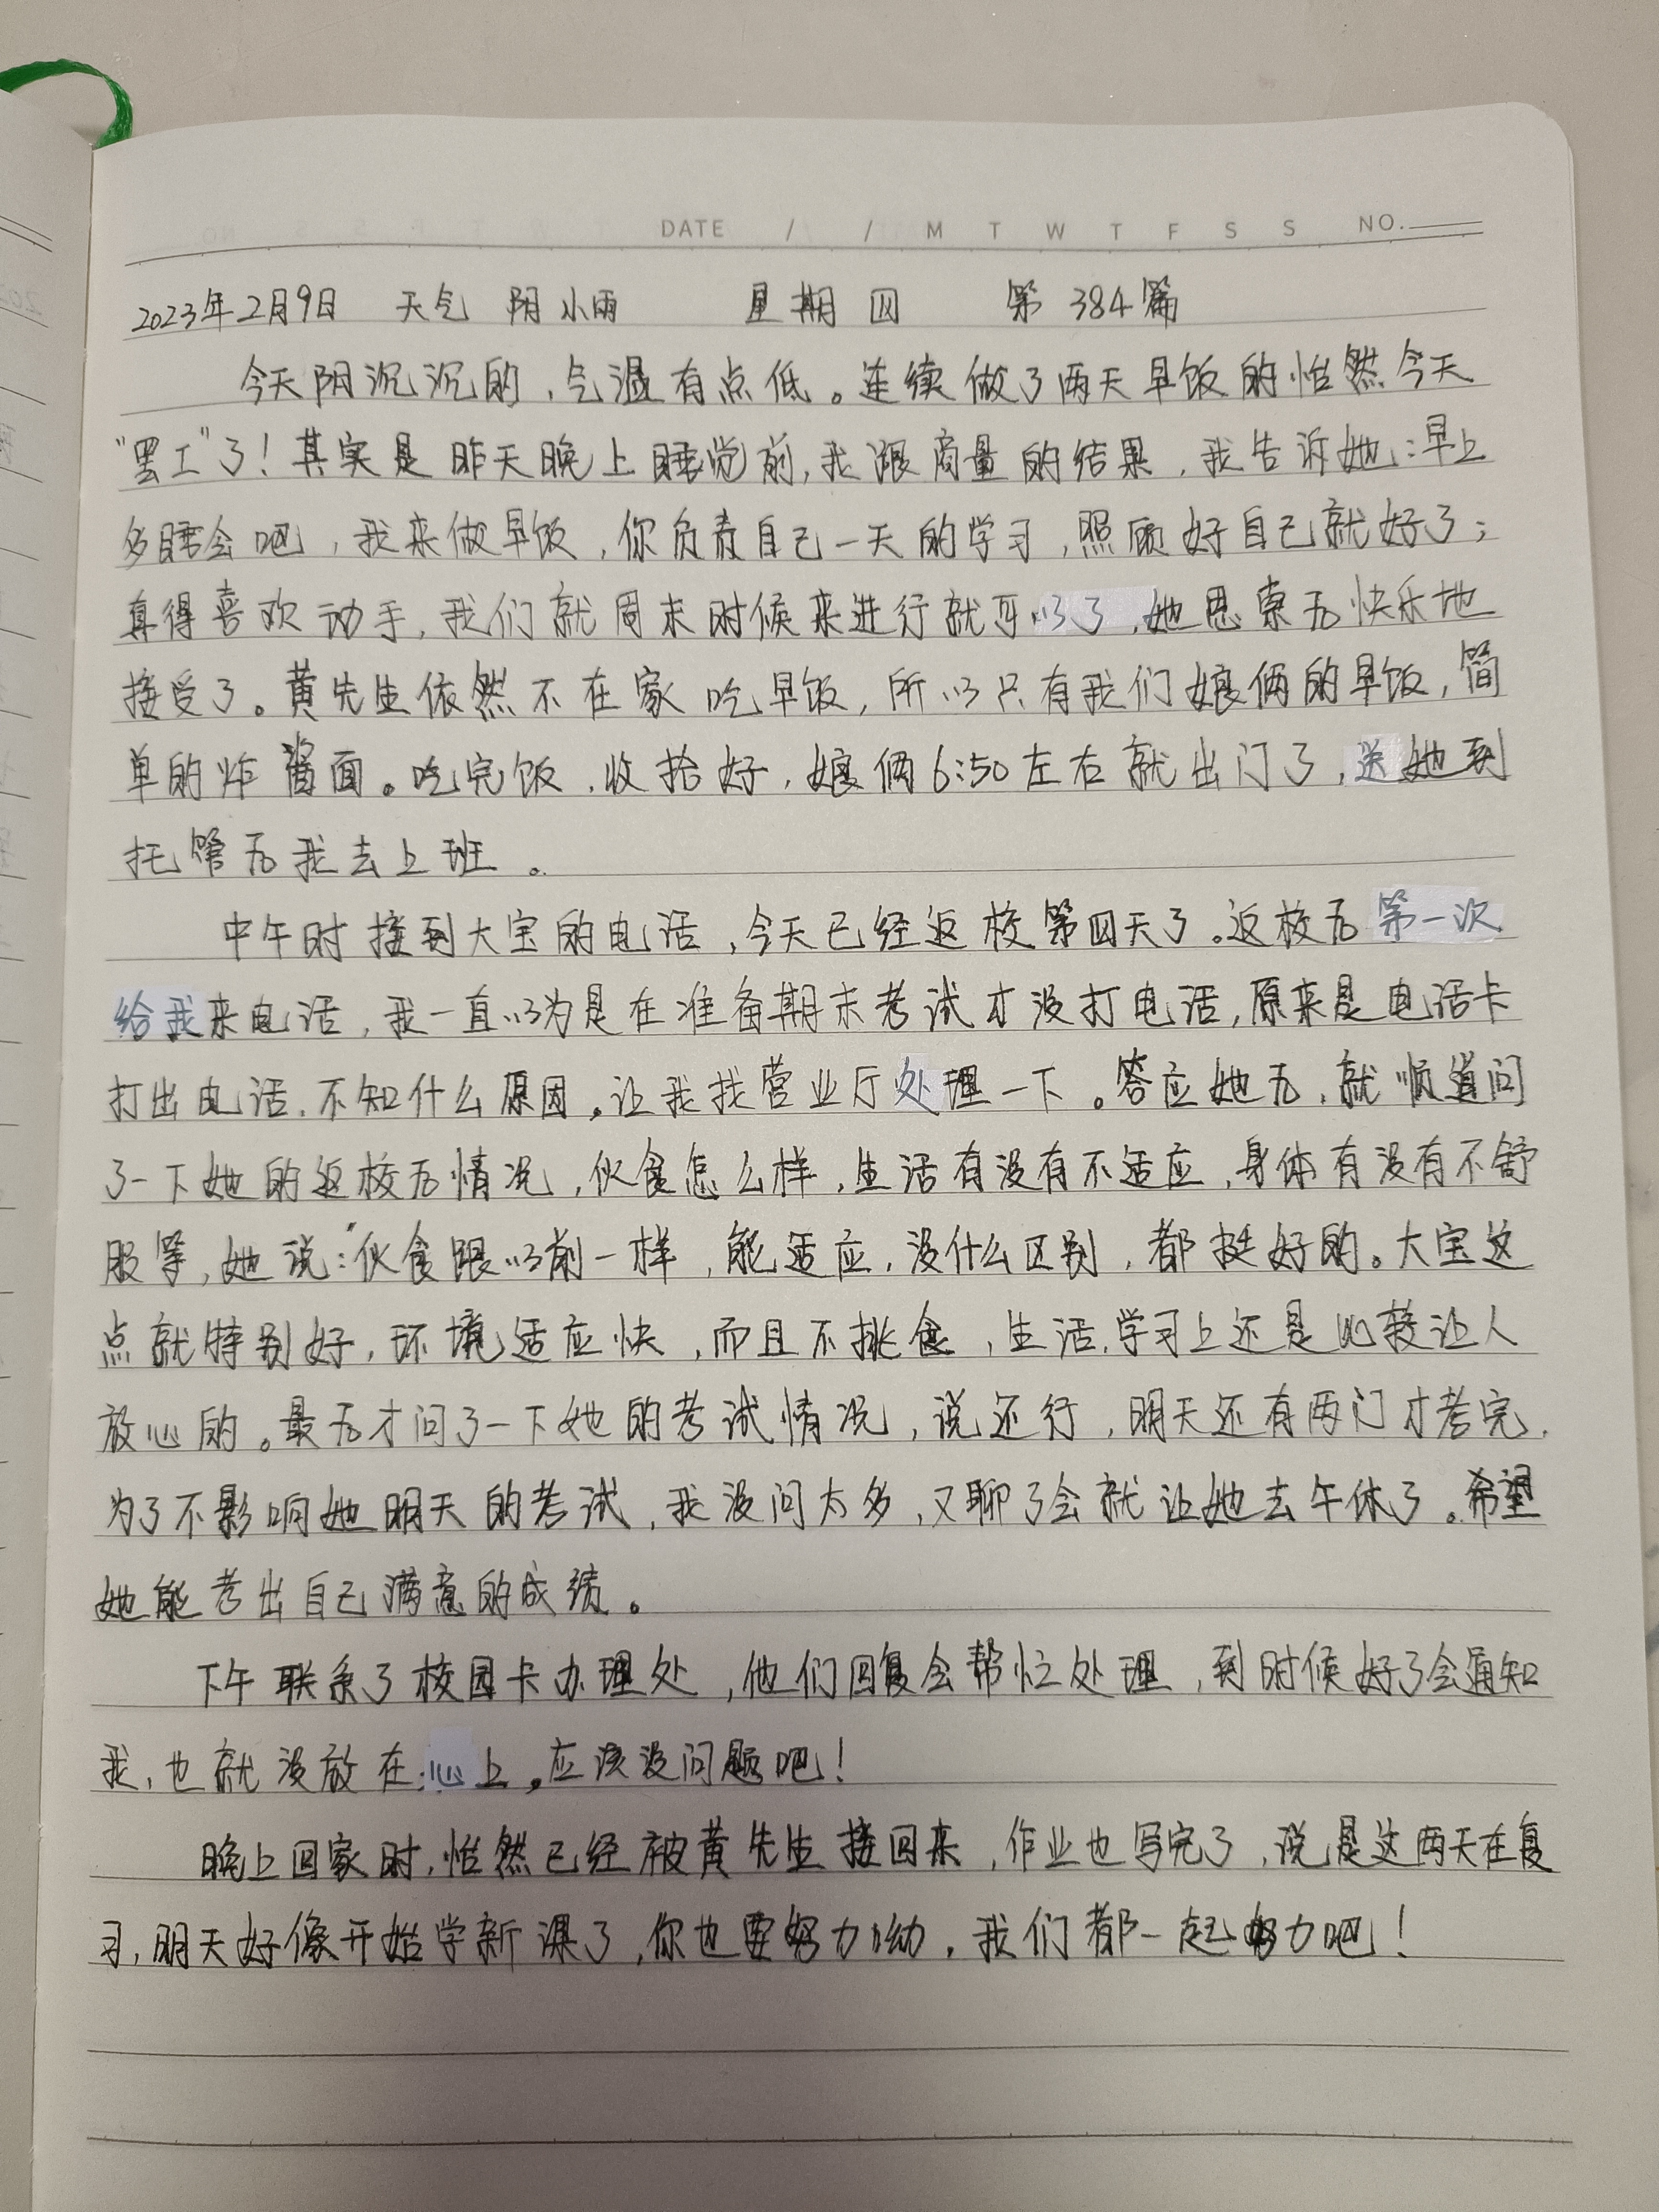 DATE / / M T W T F S S NO.
2023年2月9日 天气 阴 小雨 星期四 第384篇
今天阴沉沉的，气温有点低。连续做了两天早饭的怡然今天
“罢工”了！其实是昨天晚上睡觉前，我跟商量的结果，我告诉她：早上
多睡会吧，我来做早饭，你负责自己一天的学习，照顾好自己就好了；
真得喜欢动手，我们就周末时候来进行就可以了，她思索后快乐地
接受了。黄先生依然不在家吃早饭，所以只有我们娘俩的早饭，简
单的炸酱面。吃完饭，收拾好，娘俩6:50左右就出门了，送她到
托管后我去上班。
中午时接到大宝的电话，今天已经返校第四天了。返校后第一次
给我来电话，我一直以为是在准备期末考试才没打电话，原来是电话卡
打出电话，不知什么原因。让我找营业厅处理一下。答应她后，就顺道问
了一下她的返校后情况，伙食怎么样，生活有没有不适应，身体有没有不舒
服等，她说：“伙食跟以前一样，能适应，没什么区别，都挺好的。大宝这
点就特别好，环境适应快，而且不挑食，生活，学习上还是比较让人
放心的。最后才问了一下她的考试情况，说还行，明天还有两门才考完，
为了不影响她明天的考试，我没问太多，又聊了会就让她去午休了。希望
她能考出自己满意的成绩。
下午联系了校园卡办理处，他们回复会帮忙处理，到时候好了会通知
我，也就没放在心上。应该没问题吧！
晚上回家时，怡然已经被黄先生接回来，作业也写完了，说是这两天在复
习，明天好像开始学新课了，你也要努力呦，我们都一起努力吧！